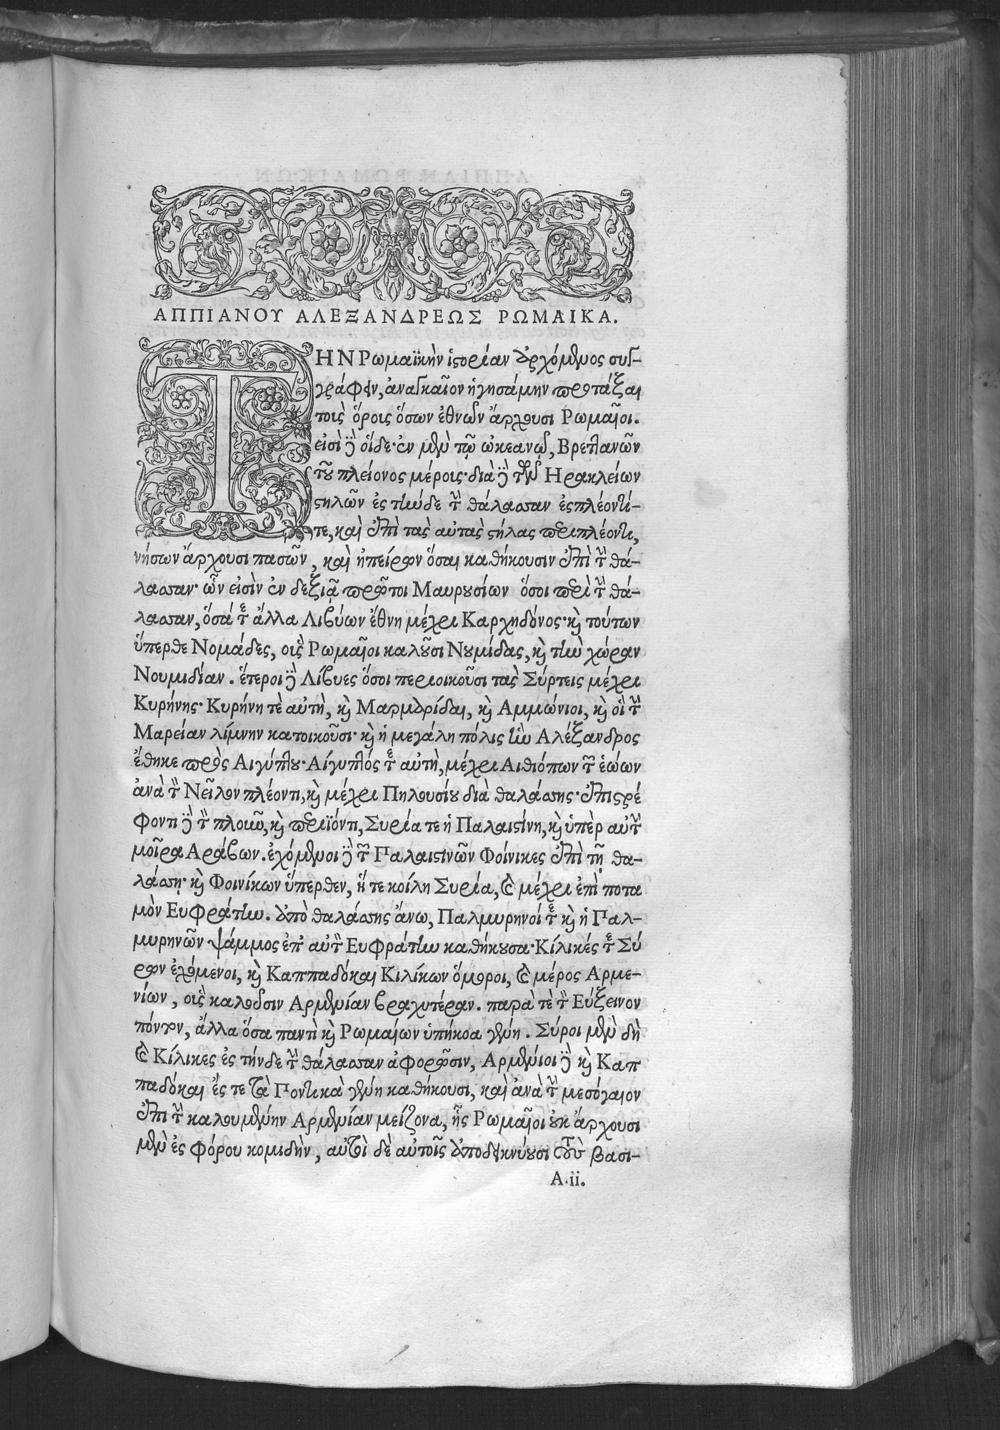 ΑΠΠΙΑΝΟΥ ΑΛΕΞΑΝΔΡΕΩΣ ΡΩΜΑΙΚΑ.
ΤΗΝ Ρωμαϊκὴν ἱστορίαν ἀρχόμενος συγ-
γράφειν, ἀναγκαῖον ἡγησάμην προτάξαι
τοὺς ὅρους ὅσων ἐθνῶν ἄρχουσι Ρωμαῖοι.
εἰσὶ δὲ οἵδε· ἐν μὲν τῷ ὠκεανῷ, Βρεττανῶν
τοῦ πλείονος μέρους· διὰ δὲ τῶν Ηρακλείων
στηλῶν ἐς τήνδε τὴν θάλασσαν ἐσπλέοντί-
τε, καὶ ἐπὶ τὰς αὐτὰς στήλας περιπλέοντι,
νήσων ἄρχουσι πασῶν, καὶ ἠπείρων ὅσαι καθήκουσιν ἐπὶ τὴν θά-
λασσαν· ὧν εἰσὶν ἐν δεξιᾷ πρῶτοι Μαυρυσίων ὅσοι περὶ τὴν θά-
λασσαν, ὅσά τε ἄλλα Λιβύων ἔθνη μέχρι Καρχηδόνος· καὶ τούτων
ὕπερθε Νομάδες, οὓς Ρωμαῖοι καλοῦσι Νουμίδας, καὶ τὴν χώραν
Νουμιδίαν. ἕτεροι δὲ Λίβυες ὅσοι περιοικοῦσι τὰς Σύρτεις μέχρι
Κυρήνης· Κυρήνη τὲ αὐτὴ, καὶ Μαρμαρίδαι, καὶ Αμμώνιοι, καὶ οἳ τὴν
Μαρείαν λίμνην κατοικοῦσι· καὶ ἡ μεγάλη πόλις ἣν Αλέξανδρος
ἔθηκε πρὸς Αιγύπτου· Αίγυπτός τε αὐτὴ, μέχρι Αιθιόπων τῶν ἑώων
ἀνὰ τὸν Νεῖλον πλέοντι, καὶ μέχρι Πηλουσίου διὰ θαλάσσης· ἐπιστρέ
φοντι δὲ τὸν πλοῦν, καὶ περιϊόντι, Συρία τε ἡ Παλαιστίνη, καὶ ὑπὲρ αὐτὴν
μοῖρα Αράβων. ἐχόμενοι δὲ τῶν Παλαιστινῶν Φοίνικες ἐπὶ τῇ θα-
λάσσῃ· καὶ Φοινίκων ὕπερθεν, ἥ τε κοίλη Συρία, καὶ μέχρι ἐπὶ ποτα
μὸν Ευφράτην. ἀπὸ θαλάσσης ἄνω, Παλμυρηνοί τε καὶ ἡ Παλ-
μυρηνῶν ψάμμος ἐπ' αὐτὸν Ευφράτην καθήκουσα· Κίλικές τε Σύ
ρων ἐχόμενοι, καὶ Καππαδόκαι Κιλίκων ὅμοροι, καὶ μέρος Αρμε-
νίων, οὓς καλοῦσιν Αρμενίαν βραχυτέραν. παρὰ τε τὸν Εύξεινον
πόντον, ἄλλα ὅσα παντὶ καὶ Ρωμαίων ὑπήκοα γένη. Σύροι μὲν δὴ
καὶ Κίλικες ἐς τήνδε τὴν θάλασσαν ἀφορῶσιν, Αρμένιοι δὲ καὶ Καπ
παδόκαι ἔς τε τὰ Ποντικὰ γένη καθήκουσι, καὶ ἀνὰ τὴν μεσόγαιον
ἐπὶ τὴν καλουμένην Αρμενίαν μείζονα, ἧς Ρωμαῖοι οὐκ ἄρχουσι
μὲν ἐς φόρου κομιδὴν, αὐτοὶ δὲ αὐτοῖς ἀποδεικνύουσι τοὺς βασι-
A.ii.